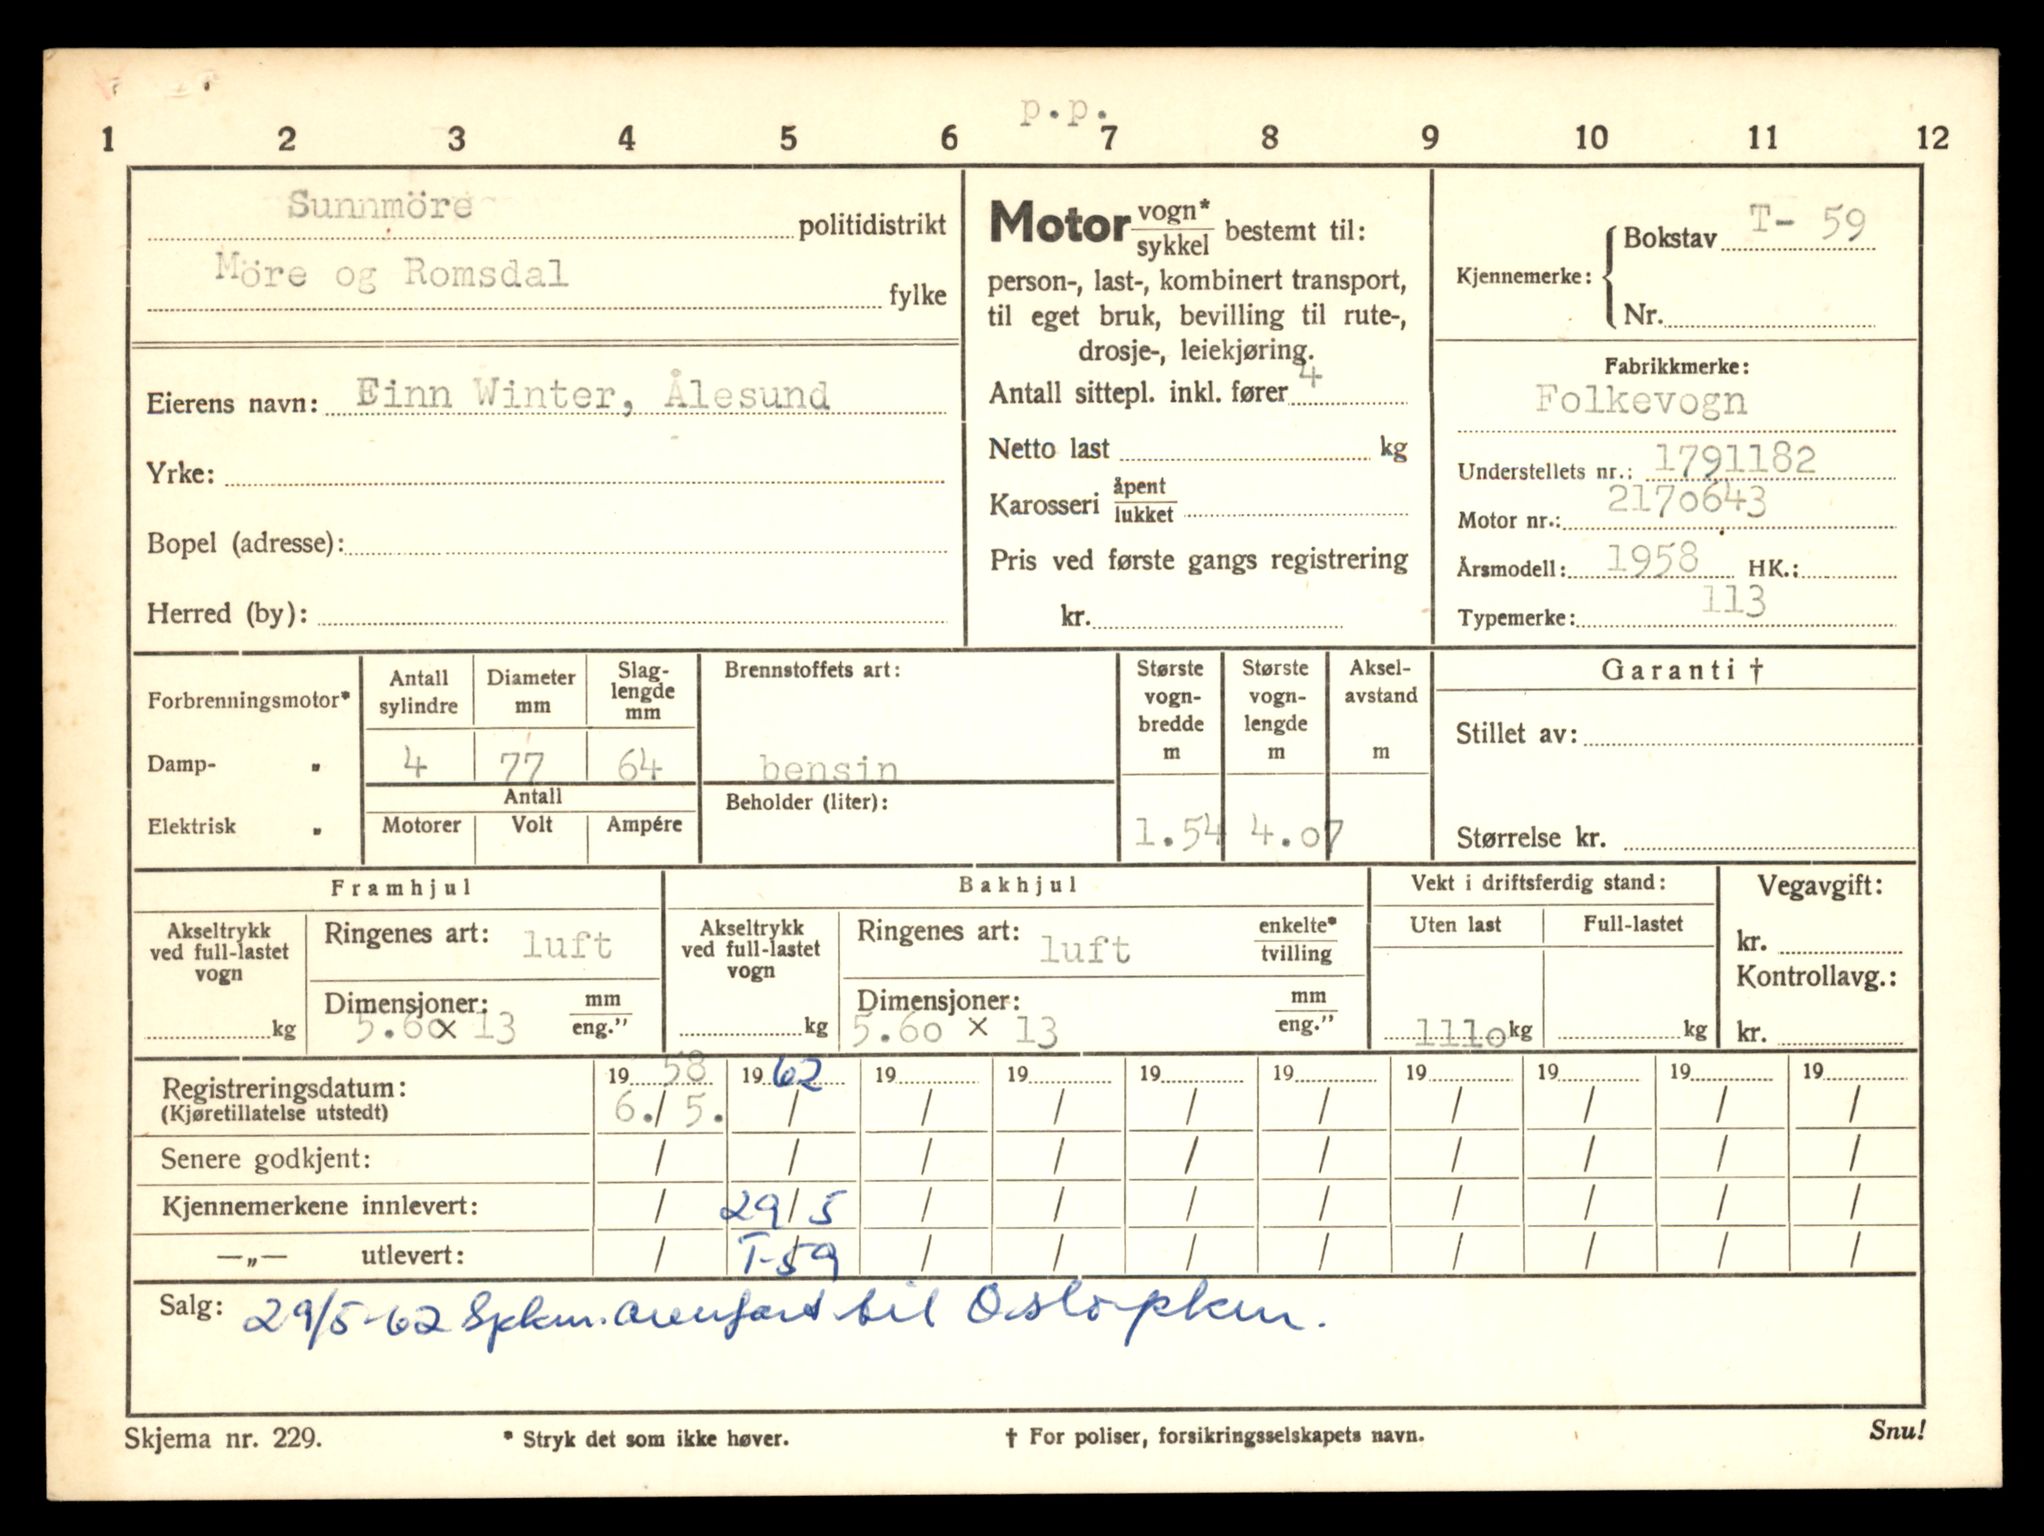 p.p.
1 2 3 4 5 6 7 8 9 10 11 12
Sunnmöre politidistrikt
Möre og Romsdal fylke
Eierens navn: Einn Winter, Ålesund
Yrke:
Bopel (adresse):
Herred (by):
Motor vogn* sykkel bestemt til:
person-, last-, kombinert transport,
til eget bruk, bevilling til rute-,
drosje-, leiekjøring.
Antall sittepl. inkl. fører 4
Netto last kg
Karosseri åpent lukket
Pris ved første gangs registrering
kr.
Kjennemerke: Bokstav T- 59
Nr.
Fabrikkmerke:
Folkevogn
Understellets nr.: 1791182
Motor nr.: 2170643
Årsmodell: 1958 HK.:
Typemerke: 113
Forbrenningsmotor*
Damp- „
Elektrisk „
Antall sylindre
4
Diameter mm
77
Slag-
lengde
mm
64
Antall
Motorer Volt Ampére
Brennstoffets art:
bensin
Beholder (liter):
Største
vogn-
bredde
m
1.54
Største
vogn-
lengde
m
4.07
Aksel-
avstand
m
Garanti †
Stillet av:
Størrelse kr.
Framhjul
Akseltrykk
ved full-lastet
vogn
kg
Ringenes art: luft
Dimensjoner: mm eng."
5.60 x 13
Bakhjul
Akseltrykk
ved full-lastet
vogn
kg
Ringenes art: luft enkelte* tvilling
Dimensjoner: mm eng."
5.60 x 13
Vekt i driftsferdig stand:
Uten last Full-lastet
1110 kg kg
Vegavgift:
kr.
Kontrollavg.:
kr.
Registreringsdatum: 19 58 19 62 19 19 19 19 19 19 19 19
(Kjøretillatelse utstedt) 6./ 5. / / / / / / / / /
Senere godkjent: / / / / / / / / / /
Kjennemerkene innlevert: / 29/5 / / / / / / / /
—„— utlevert: / T-59 / / / / / / / /
Salg: 29/5-62 Spkm. overført til Oslo pkm.
Skjema nr. 229. * Stryk det som ikke høver. † For poliser, forsikringsselskapets navn. Snu!